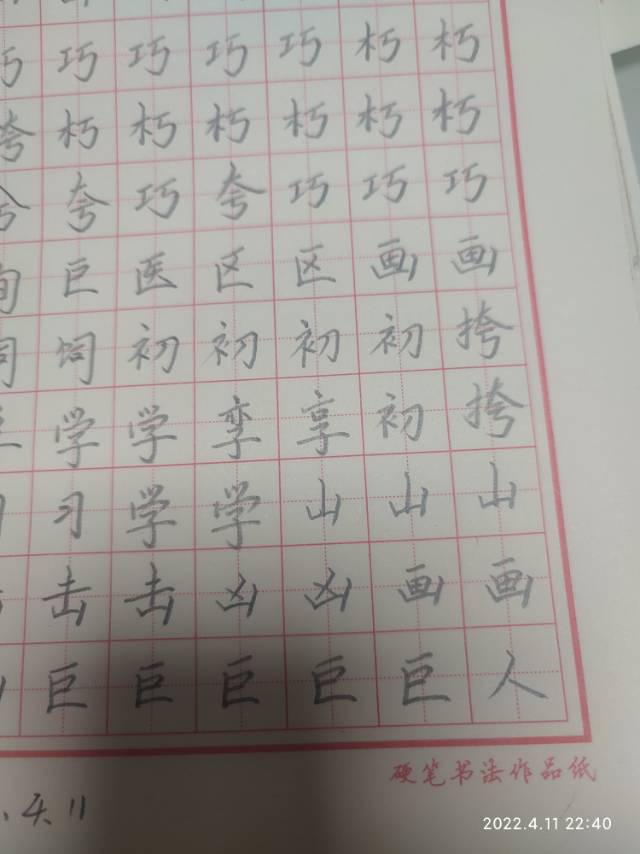 巧 巧 巧 巧 朽 朽
朽 朽 朽 朽 朽 朽
夸 巧 夸 巧 巧 巧
巨 医 区 区 画 画
饲 初 初 初 初 挎
学 学 孪 享 初 挎
习 学 学 山 山 山
击 击 凶 凶 画 画
巨 巨 巨 巨 巨 人
硬笔书法作品纸
2022.4.11 22:40